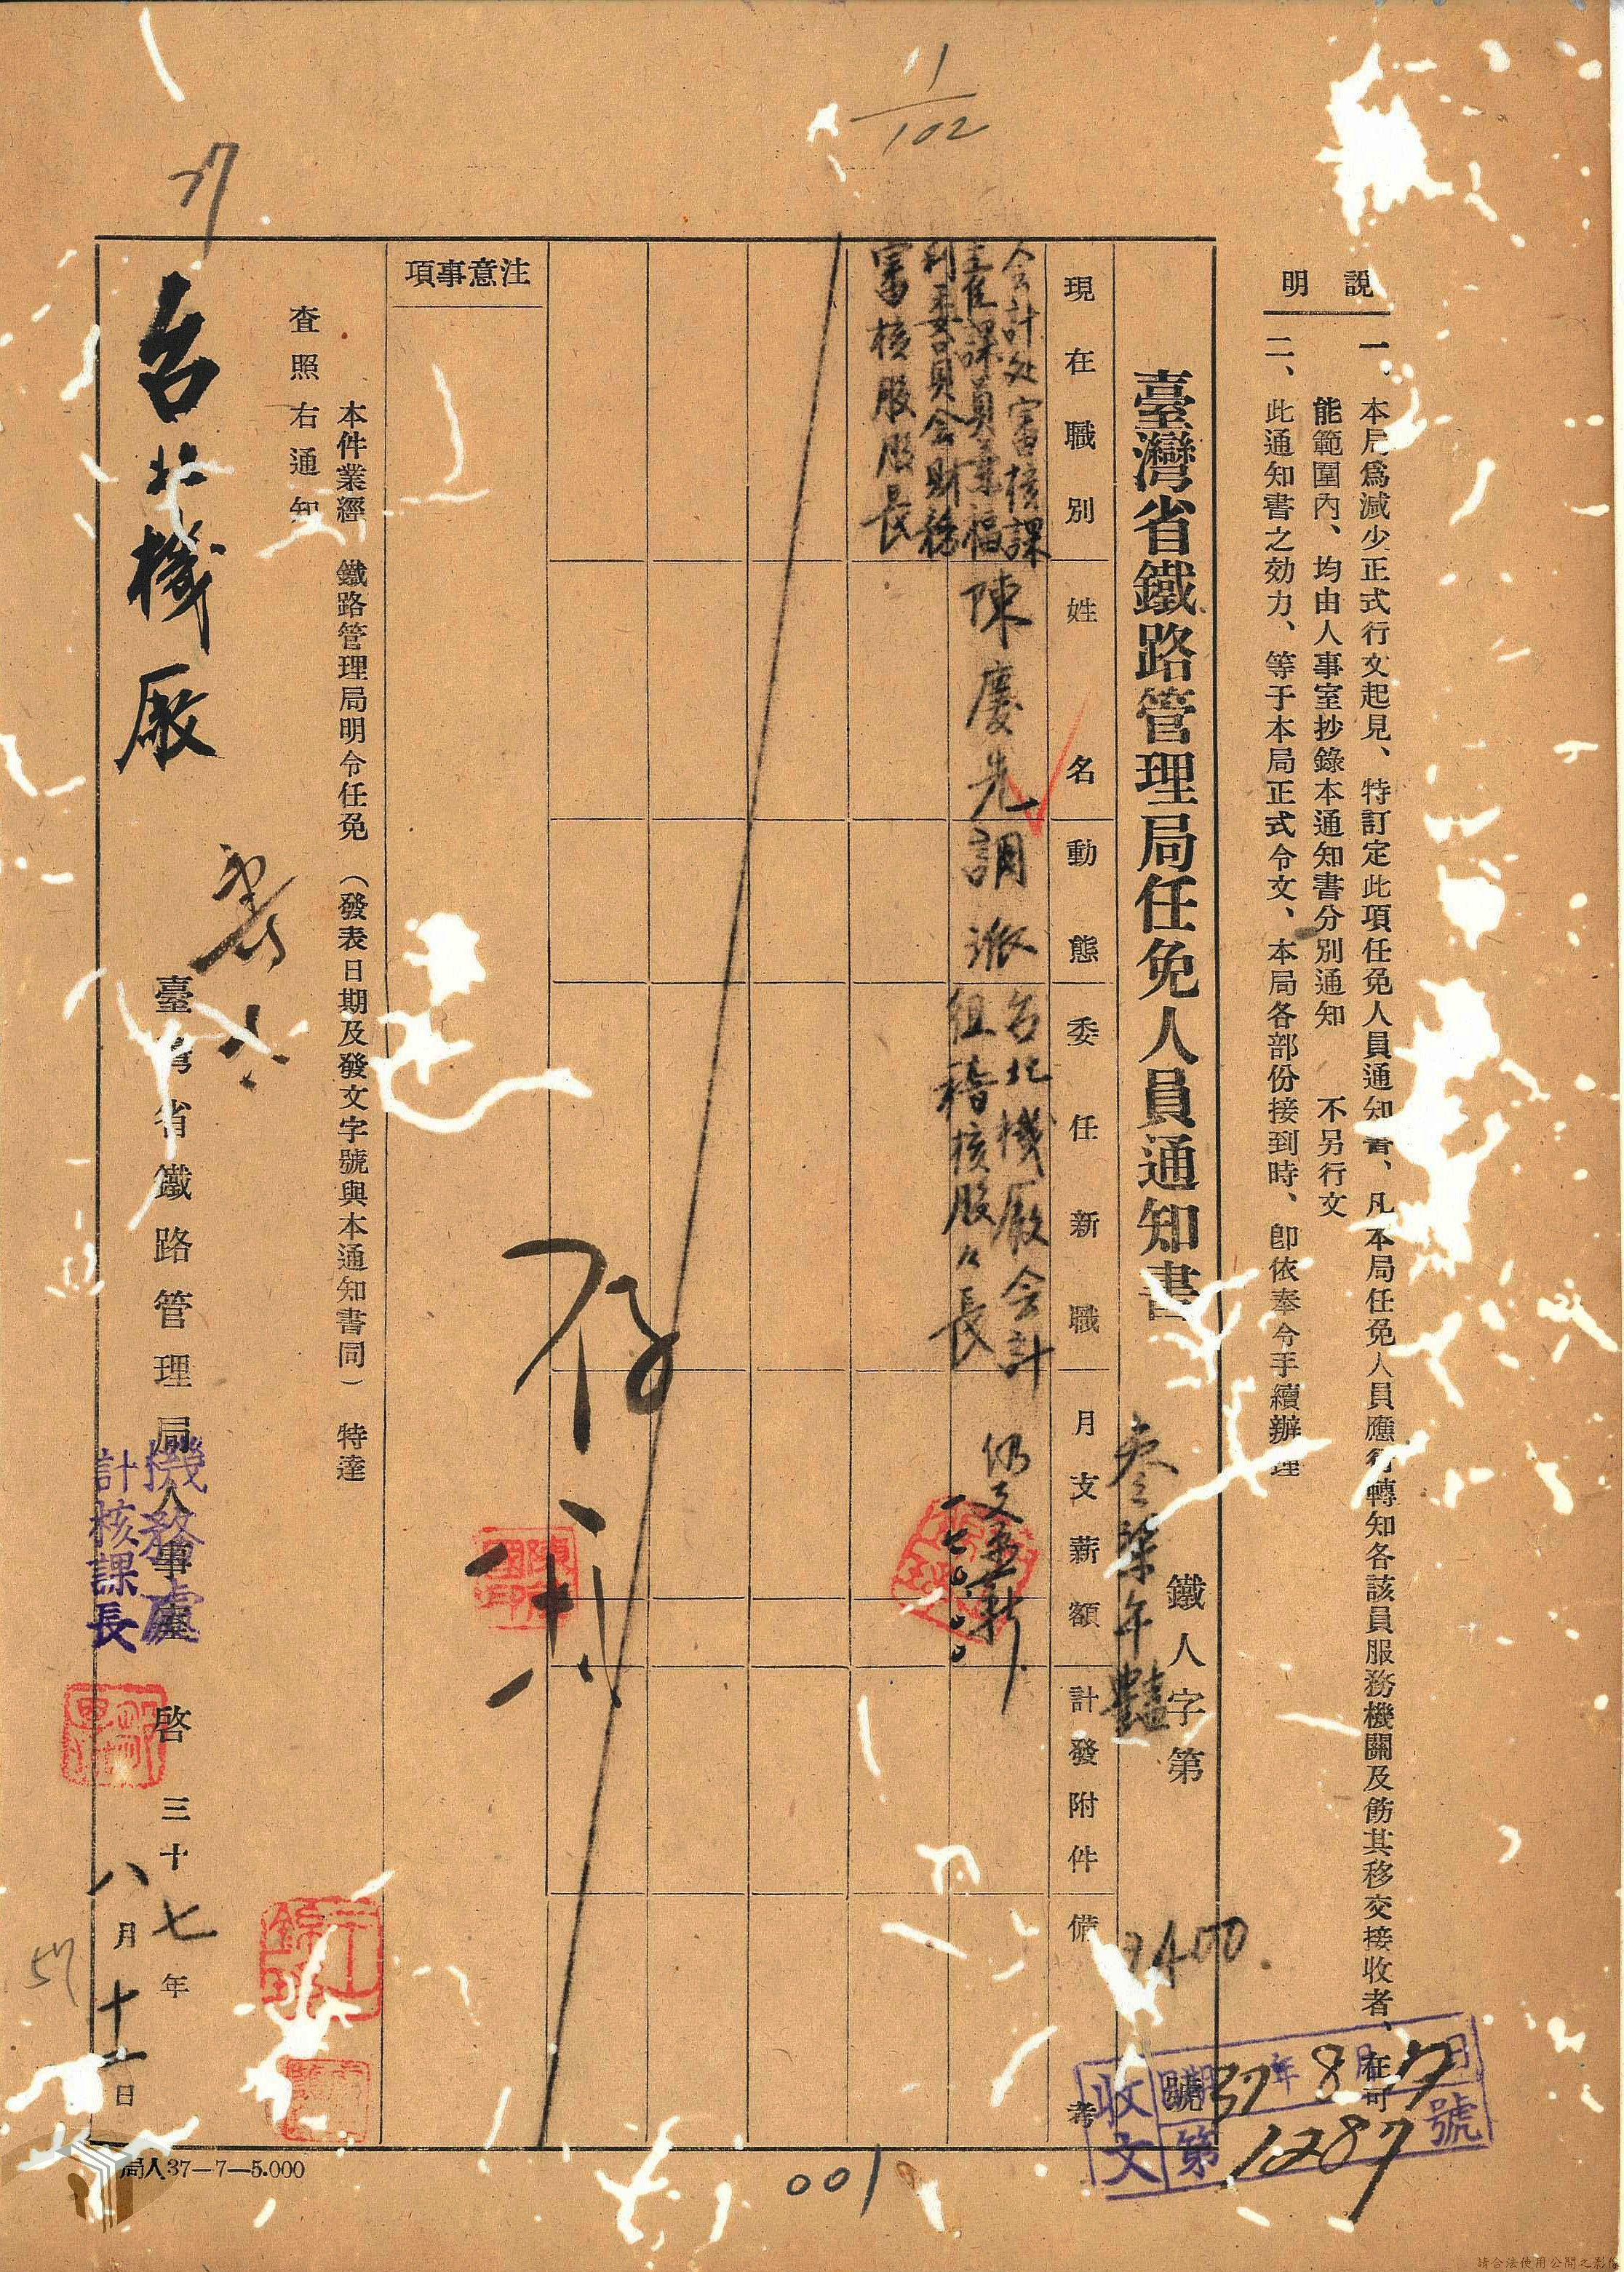 1/102
說明
一、本局爲減少正式行文起見、特訂定此項任免人員通知書、凡本局任免人員應行轉知各該員服務機關及飭其移交接收者、在可
能範圍內、均由人事室抄錄本通知書分別通知　不另行文
二、此通知書之効力、等于本局正式令文、本局各部份接到時、卽依奉令手續辦理
臺灣省鐵路管理局任免人員通知書
鐵人字第　號
叁柒午
7400
收文
37年8月17日
第1287號
現在職別
姓名
動態
委任新職
月支薪額
計發附件
備考
会計处審核課
主任課員兼福
利委員会財務
審核股股長
陳慶先
調派
台北機厰会計
組稽核股々長
仍支原薪
存
注意事項
本件業經　鐵路管理局明令任免（發表日期及發文字號與本通知書同）　特達
查照
右通知
台北機厰
臺灣省鐵路管理局人事室　啓
三十七年
八月十一日
機務處
計核課長
局人37—7—5.000
001
請合法使用公開之影像